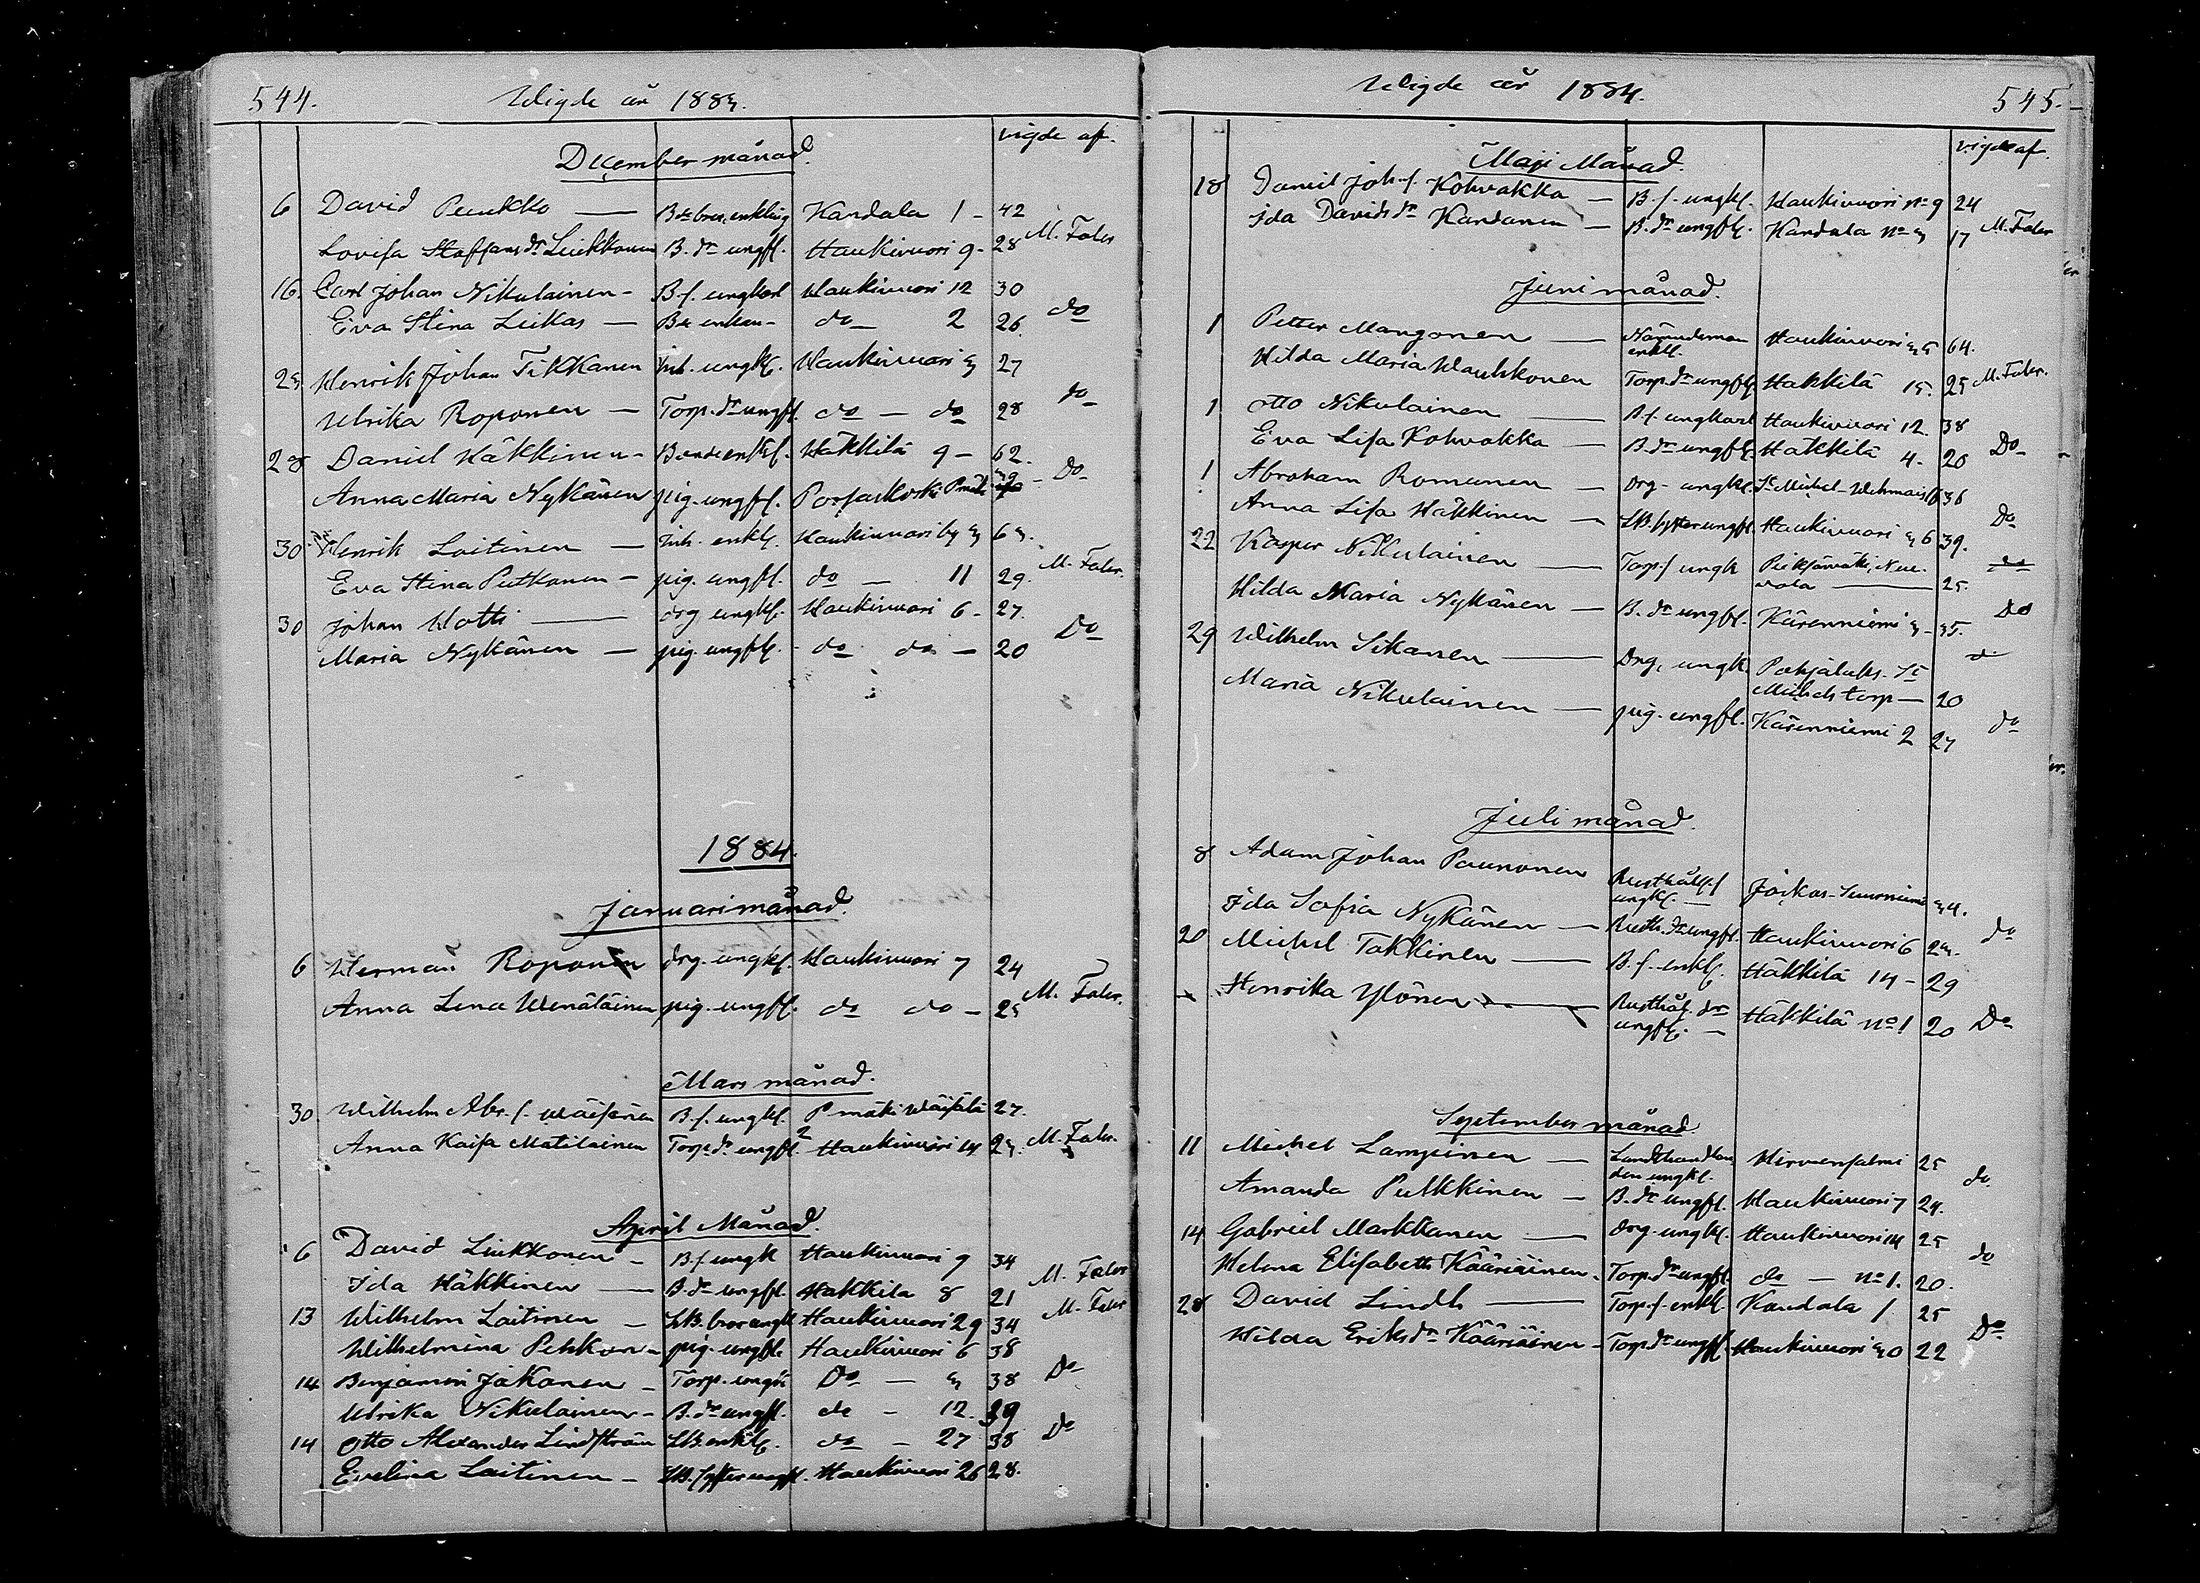 544.
Wigde år 1883.
vigde af.
December månad.
6 David Puukko — Bde bror. enkling Kandala 1 - 42
Lovisa Staffans dr Liukkonen B. dr ungfl. Haukivuori 9 - 28 M. Faler
16. Carl Johan Nikulainen - B. s. ungkarl Haukivuori 12 30
Eva Stina Liikas — Bde enkan - do 2 26 do
23. Henrik Johan Tikkanen Inh. ungkl. Haukivuori 3 27
Ulrika Roponen — Torp. dr ungfl. do — do 28 do
28 Daniel Häkkinen - Bonde enkl. Häkkilä 9 - 62.
Anna Maria Nykänen pig. ungfl. Porsaskoski - Do
30. Henrik Laitinen — Inh. enkl. Haukivuori 63.
Eva Stina Putkonen - pig. ungfl. do — 11 29. M. Faler.
30 Johan Hotti — drg ungkl. Haukivuori 6 - 27.
Maria Nykänen — pig. ungfl. - do do — 20 Do
1884.
Januari månad.
6 Herman Roponen drg. ungkl. Haukivuori 7 24
Anna Lena Wenäläinen pig. ungfl. do do - 25 M. Faler.
Mars månad.
30. Wilhelm Abr. s. Wäisänen B. s. ungkl. P mäki Wäisälä 27.
Anna Kaisa Matilainen Torp. dr ungfl. Haukivuori 14 23. M. Faler.
April Månad.
6 David Liukkonen - B. s. ungk Haukivuori 9 34
Ida Häkkinen — B. dr ungfl. Häkkilä 8 21 M. Faler
13 Wilhelm Laitinen — LB. bror ungk Haukivuori 29 34 M. Faler
Wilhelmina Pekkonen - pig. ungfl. Haukivuori 6 38
14 Benjamin Jakonen - Torp. ungk Do — 3 38 Do
Ulrika Nikulainen - B. dr ungfl. do - 12. 39
14 Otto Alexander Lindström LB. enkl. do - 27 38 Do
Evelina Laitinen - LB. syster ungfl. Haukivuori 26 28.
Wigde år 1884.
545.
vigde af.
Maji Månad.
18 Daniel Joh. s. Kohvakka — B. s. ungkl. Haukivuori no 9 24
Ida Davids dr Kardanen — B. dr ungfl. Kandala no 3 17 M. Faler
Juni månad.
1 Petter Manzonen — Nämndeman enkl. Haukivuori 35 64.
Hilda Maria Wauhkonen Torp. dr ungfl. Häkkilä 15. 25 M. Faler.
1 Otto Nikulainen — B. s. ungkarl Haukivuori 12. 38
Eva Lisa Kohvakka — B. dr ungfl. Häkkilä 4. 20 Do
1 Abraham Romunen — drg - ungkl. St Michel - 36
Anna Lisa Häkkinen — LB. syster ungfl. Haukivuori 36 39. Do
22 Kasper Nikulainen — Torp. s ungk Pieksämäki, Neu-
vola — 25. do
Hilda Maria Nykänen — B. dr ungfl. Kärenniemi 3 - 35. Do
29 Wilhelm Sikanen — Drg. ungk. Pohjalaks. St
Michels torp — 20 d
Maria Nikulainen — pig. ungfl. Kärenniemi 2 27 do
Juli månad.
8 Adam Johan Paunonen Rusthåll. s ungkl. — Jockas - 34.
Ida Sofia Nykänen — Rusth. dr ungfl. Haukivuori 6 23. do
20 Michel Takkinen — B. s. enkl. Häkkilä 14 - 29
Henrika Ylönen — Rusthål. dr ungfl. — Häkkilä no 1 20 Do
September månad.
11 Michel Lampinen — Landthandlan
den ungkl. Hirvensalmi 25 do
Amanda Pulkkinen — B. dr ungfl. Haukivuori 7 24.
14 Gabriel Markkanen — drg. ungkl. Haukivuori 14 25 do
Helena Elisabeth Kääriäinen - Torp. dr ungfl. do — no 1. 20.
28 David Lindh — Torp. s. enkl. Kandala 1 25
Hilda Eriks dr Kääriäinen - Torp. dr ungfl. Haukivuori 30 22 Do